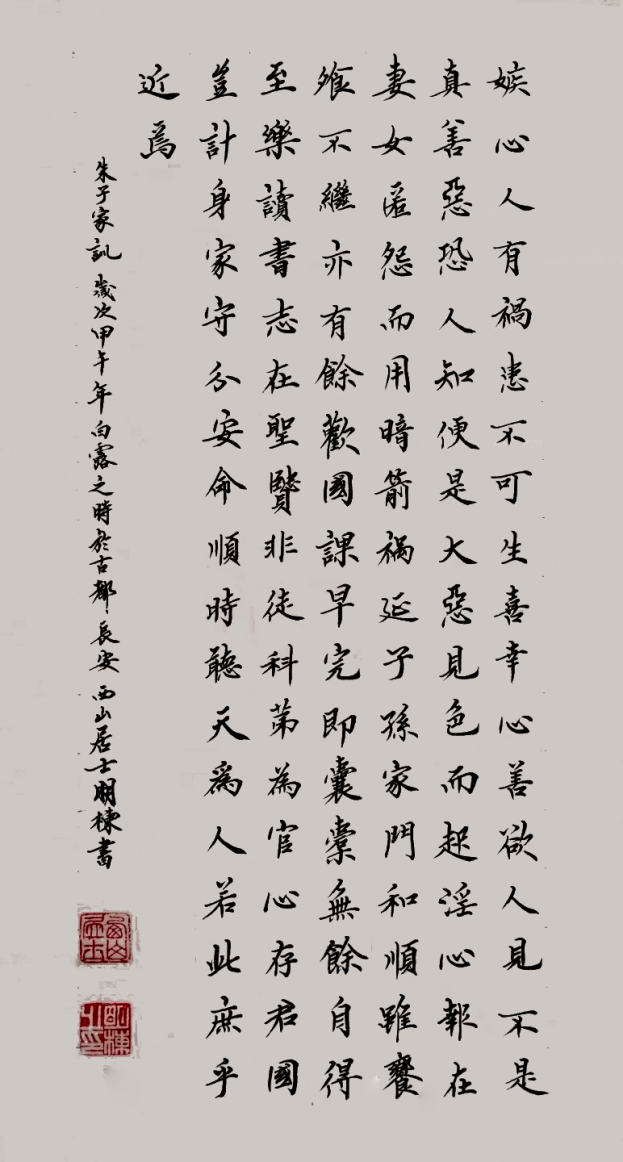 嫉心人有禍患不可生喜幸心善欲人見不是
真善惡恐人知便是大惡見色而起淫心報在
妻女匿怨而用暗箭禍延子孫家門和順雖饔
飧不繼亦有餘歡國課早完即囊橐無餘自得
至樂讀書志在聖賢非徒科第為官心存君國
豈計身家守分安命順時聽天爲人若此庶乎
近焉
朱子家訓 歲次甲午年白露之時於古都長安 西山居士明棟書
西山居士
明棟之印